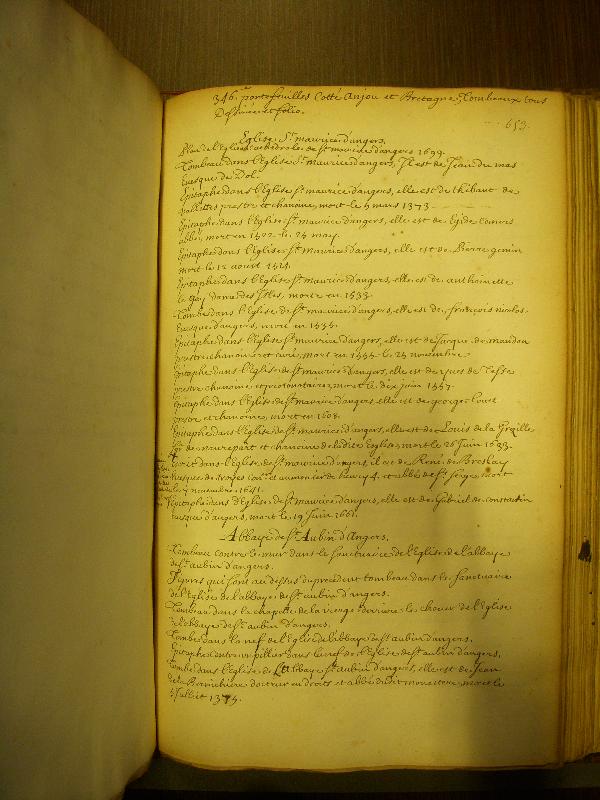 346.e portefeuilles Cotté Anjou et Bretagne, Tombeaux tous
Dessinés et folio.
653.
Eglise St. maurice d'angers.
Plan de l'Eglise Cathedrale de St. maurice d'angers 1699.
Tombeau dans l'Eglise St. Maurice d'angers, Il est de Jean du mas
Evesque de Dol.
Epitaphe dans l'Eglise St. maurice d'angers, elle est de thibaut de
vallettes prestre et chanoine, mort le 5 mars 1373.
Epitaphe dans l'Eglise St. maurice d'angers, elle est de Egide
abbé, mort en 1502 le 25 may.
Epitaphe dans l'Eglise St. Maurice d'angers, elle est de Pierre
mort le 12 aoust
Epitaphe dans l'Eglise St. Maurice d'angers, elle est de anthoinette
le Gay dame des Isles, morte en 1533.
Tombe dans l'Eglise de St. maurice d'angers, elle est de françois
Evesque d'angers, en 1535.
Epitaphe dans l'Eglise St. maurice d'angers, elle est de Jacque de mandon
prestre chanoine et curé, mort en le 25 novembre.
Epitaphe dans l'Eglise de St. maurice d'angers, elle est de yves de Tesse
prestre chanoine et protonotaire, mort le dix juin 1557.
Epitaphe dans l'Eglise de St. maurice d'angers elle est de george Louet
et chanoine, mort en 1608.
Epitaphe dans l'Eglise de St. maurice d'angers, elle est de Louis de la Grezille
Sr. de maurepart et chanoine de ladite Eglise, mort le 26 Juin 1633.
dans l'Eglise de St. maurice d'angers, il est de René de Breslay
Evesque de troyes et aumonier de henry 4. et abbé de St. Serge, mort
le 7 novembre 1641.
Epitaphe dans l'Eglise de St. Maurice d'angers, elle est de Gabriel de constantin
d'angers, mort le 19 Juin 1661.
Abbaye de St. Aubin d'Angers.
Tombeau contre le mur dans le Sanctuaire de l'Eglise de l'abbaye
de St. aubin d'angers.
Figures qui sont au dessus du precedent tombeau dans le Sanctuaire
de l'Eglise de l'abbaye de St. aubin d'angers.
Tombeau dans la chapelle de la vierge derriere le choeur de l'Eglise
de l'abbaye de St. aubin d'angers.
Tombe dans la nef de l'Eglise de l'abbaye de St. aubin d'angers.
Epitaphe contre un pillier dans la nef de l'Eglise de St. aubin d'angers.
Tombe dans l'Eglise de L'Abbaye St. aubin d'angers, elle est de Jean
de la docteur en droits et abbé dudit monastere, mort le
Juillet 1375.